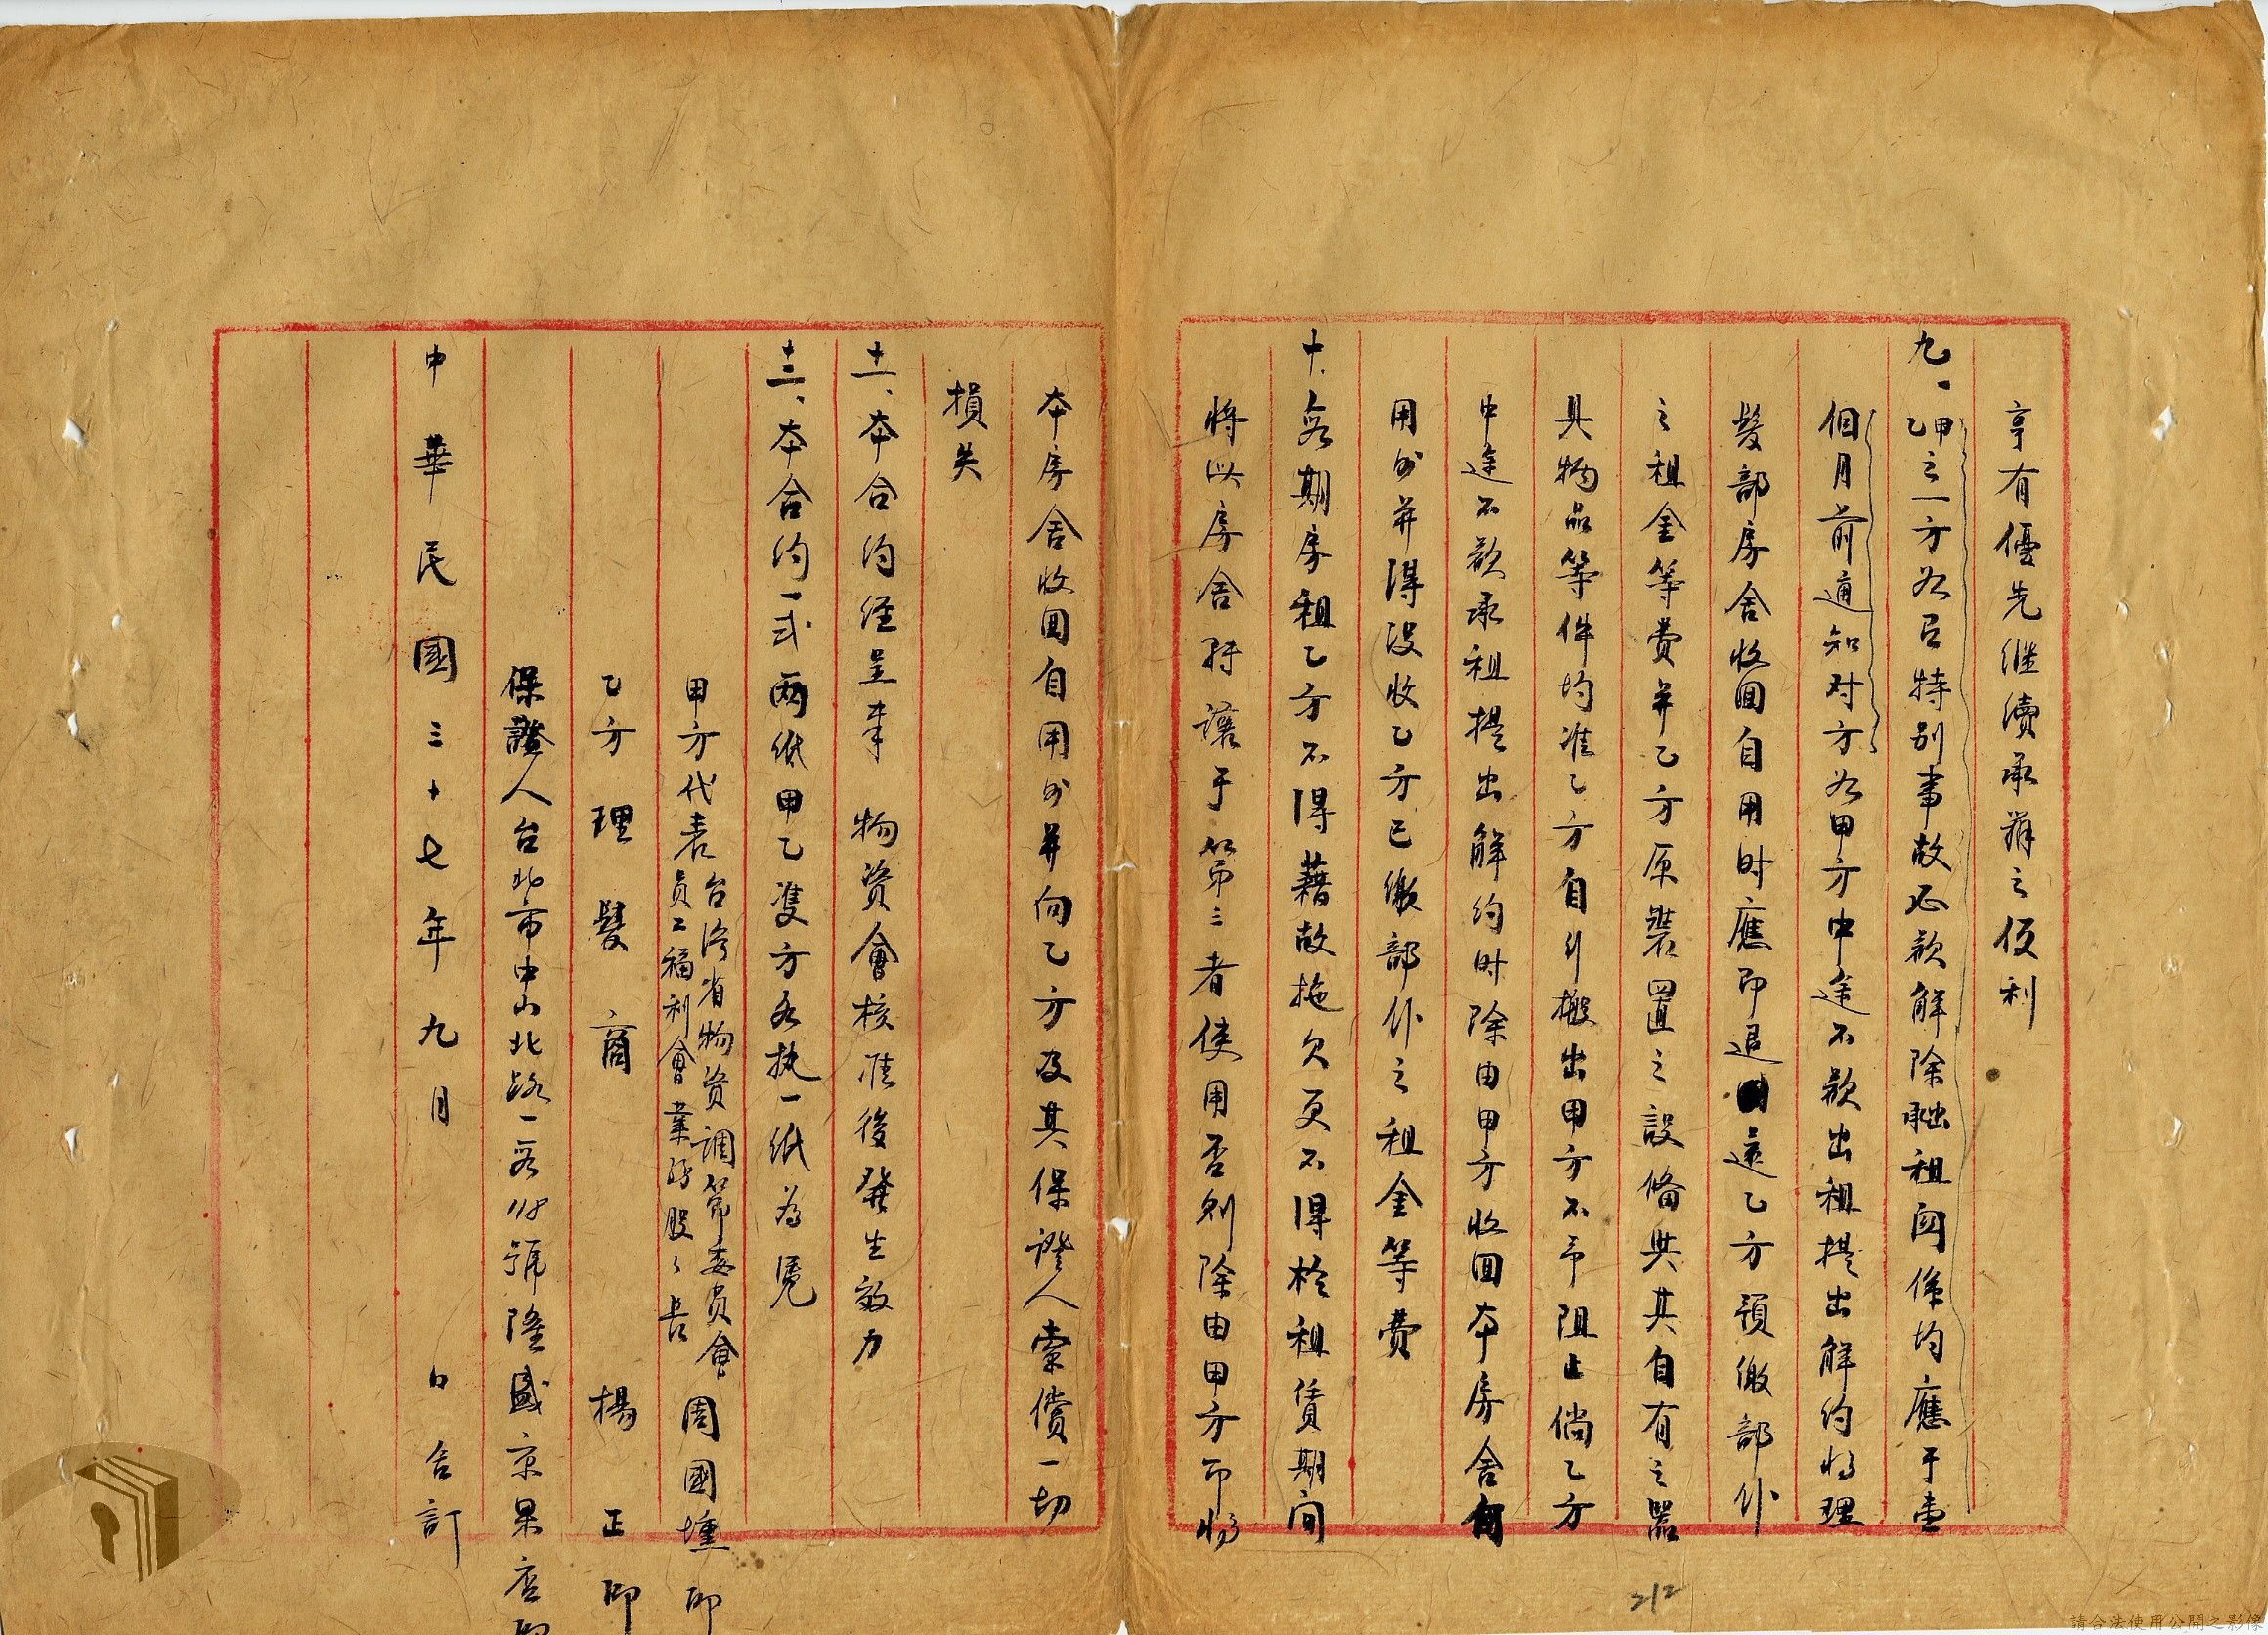 享有優先继續承辦之便利
九、甲乙之一方如另有特别事故必欲解除出租関係均應于壹
個月前通知对方如甲方中途不欲出租提出解约将理
髮部房舍收回自用时應即退還乙方預繳部份
之租金等費并乙方原裝置之設俻與其自有之器
具物品等件均准乙方自行搬出甲方不予阻止倘乙方
中途不欲承租提出解约时除由甲方收回本房舍自
用外并得没收乙方已繳部份之租金等費
十、每期房租乙方不得藉故拖欠更不得於租賃期间
将此房舍转讓于第三者使用否则除由甲方即将
本房舍收回自用外并向乙方及其保證人索償一切
損失
十一、本合约经呈奉 物资會核准後發生效力
十二、本合约一式两纸甲乙双方各执一纸为凭
甲方代表台湾省物资調節委員會員工福利會業務股々長 周國壎 印
乙方 理髮商 楊正 印
保證人台北市中山北路一段118號隆盛京果店印
中華民國三十七年九月 日 合訂
212
請合法使用公開之影像